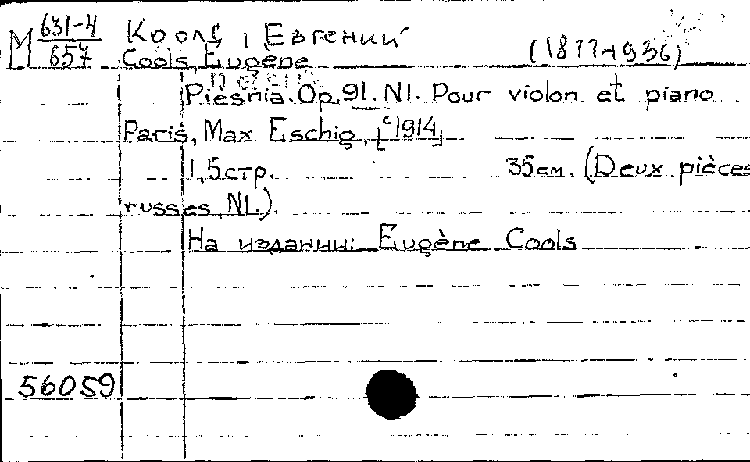 M 631-4
657
Коолс, Евгений
Cools, Eugène (1877-1936)
Piesnia. Op. 91. N1. Pour violon et piano
Paris, Max Eschig, [c1914]
1, 5 стр. 35 см. (Deux pièces
russes N1.)
На издании: Eugène Cools
56059